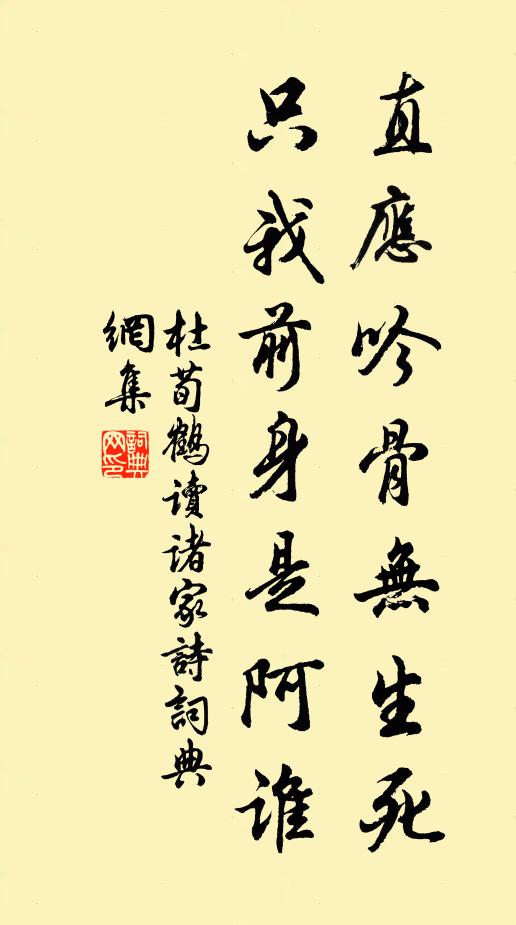 直應吟骨無生死
只我前身是阿誰
杜荀鶴讀诸家詩詞典
網集
詞典
网印